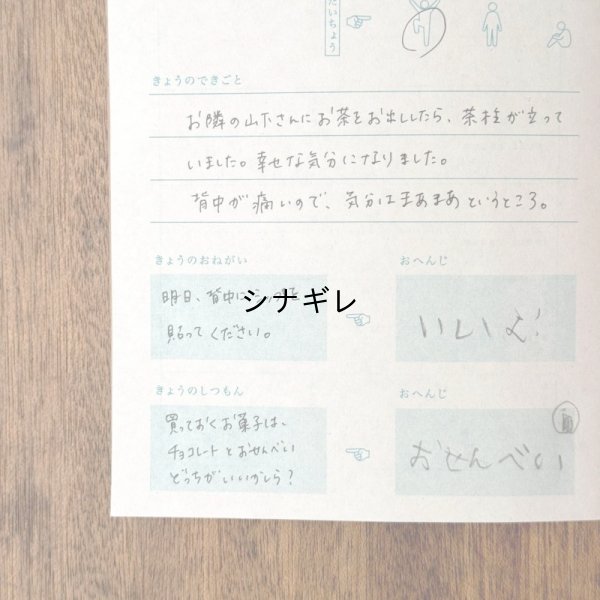 だいちょう
きょうのできごと
お隣の山下さんにお茶をお出ししたら、茶柱が立って
いました。幸せな気分になりました。
背中が痛いので、気分はまあまあというところ。
きょうのおねがい
おへんじ
明日、背中に
シナギレ
貼ってください。
いいよ!
きょうのしつもん
おへんじ
買っておくお菓子は、
チョコレートとおせんべい
どっちがいいかしら?
おせんべい